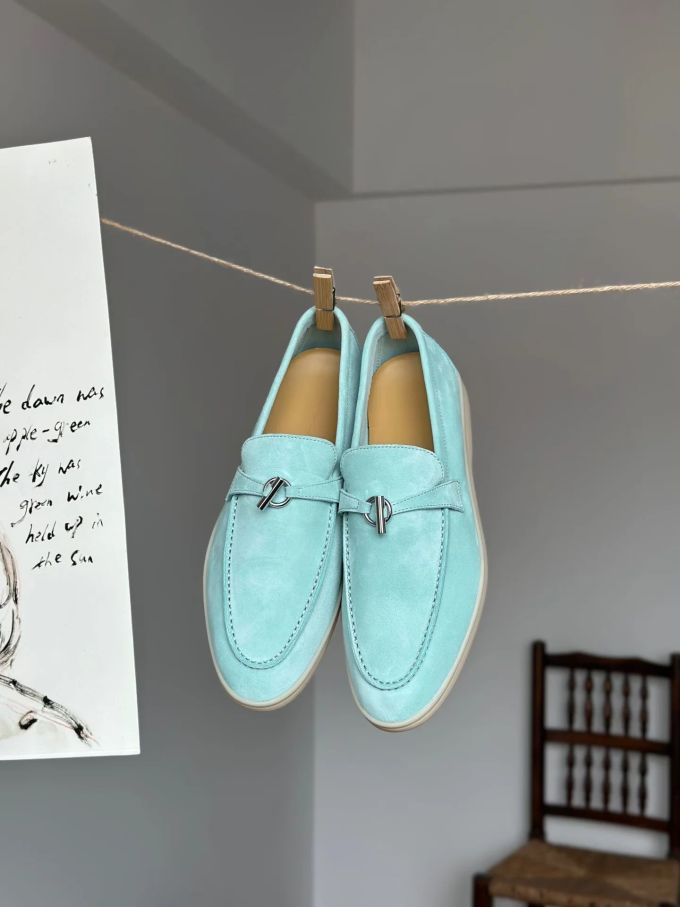 he dawn was
apple-green
The ky was
green wine
held up in
the sun